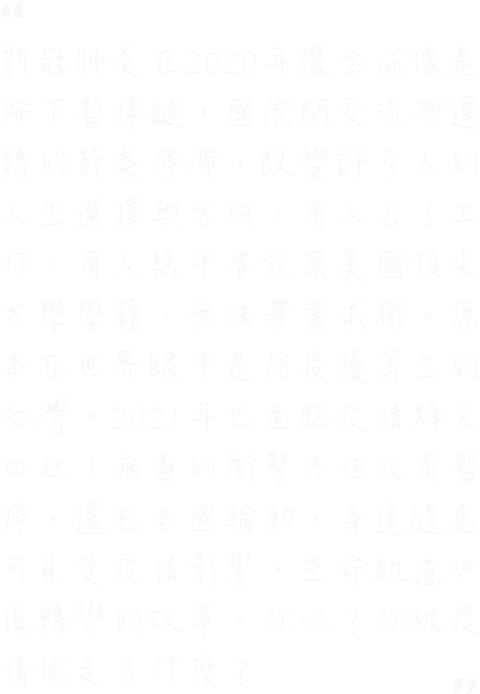 “
新冠肺炎在2020年讓全球像是
按下暫停鍵，國際間交流與運
轉的節奏停滯，改變許多人的
人生選擇與方向，有人丟了工
作、有人幾乎要放棄美國頂尖
大學學籍，無法畢業求職。原
本在世界眼中是防疫優等生的
台灣，2021年也面臨疫情烽火
四起！病毒的衝擊不但沒有暫
停，還在各國輪動，身邊隨處
可見受疫情影響，生命軌道必
須轉彎的故事。你呢？你被疫
情偷走了什麼？
”